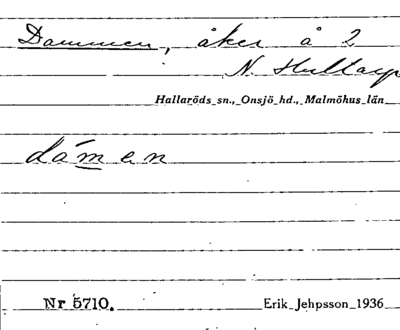 Dammen, åker å 2
N. Hultarp
Hallaröds sn., Onsjö hd., Malmöhus län
dámen
Nr 5710.
Erik Jehpsson 1936